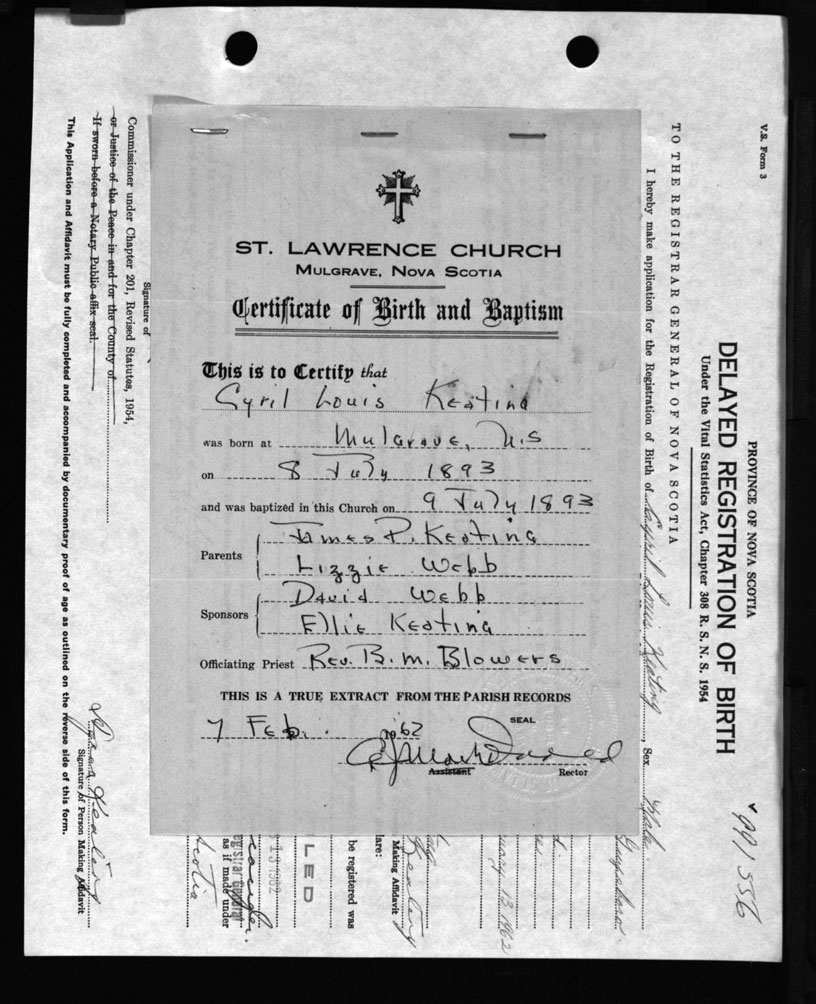 ST. LAWRENCE CHURCH
MULGRAVE, NOVA SCOTIA
Certificate of Birth and Baptism
This is to Certify that
Cyril Louis Keating
was born at Mulgrave, N.S
on 8 July 1893
and was baptized in this Church on 9 July 1893
Parents
James P. Keating
Lizzie Webb
Sponsors
David Webb
Ellie Keating
Officiating Priest Rev. B. M. Blowers
THIS IS A TRUE EXTRACT FROM THE PARISH RECORDS
7 Feb. 1962
SEAL
Assistant Rector
V.S. Form 3
PROVINCE OF NOVA SCOTIA
DELAYED REGISTRATION OF BIRTH
Under the Vital Statistics Act, Chapter 308 R. S. N. S. 1954
991556
TO THE REGISTRAR GENERAL OF NOVA SCOTIA
I hereby make application for the Registration of Birth of Cyril Louis Keating, Sex Male
Guysboro
13 1962
Making Affidavit
Keating
lare:
be registered was
LED
13 1962
Registrar General
as if made under
Scotia
Signature of
Commissioner under Chapter 201, Revised Statutes, 1954,
or Justice of the Peace in and for the County of
If sworn before a Notary Public affix seal.
Keating
Signature of Person Making Affidavit
This Application and Affidavit must be fully completed and accompanied by documentary proof of age as outlined on the reverse side of this form.